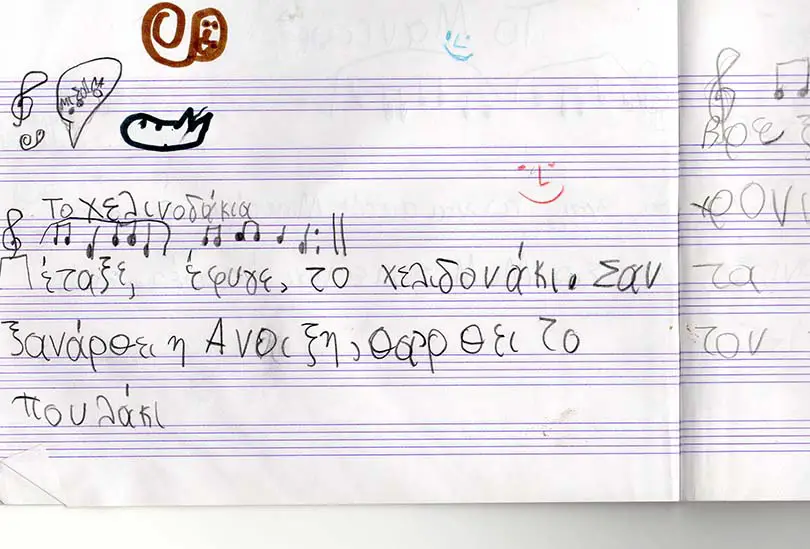 Το χελινοδάκια
Πέταξε, έφυγε, το χελιδονάκι. Σαν
ξανάρθει η Ανοιξη, θαρθει το
πουλάκι
Βρε
χρονι
τα
τον